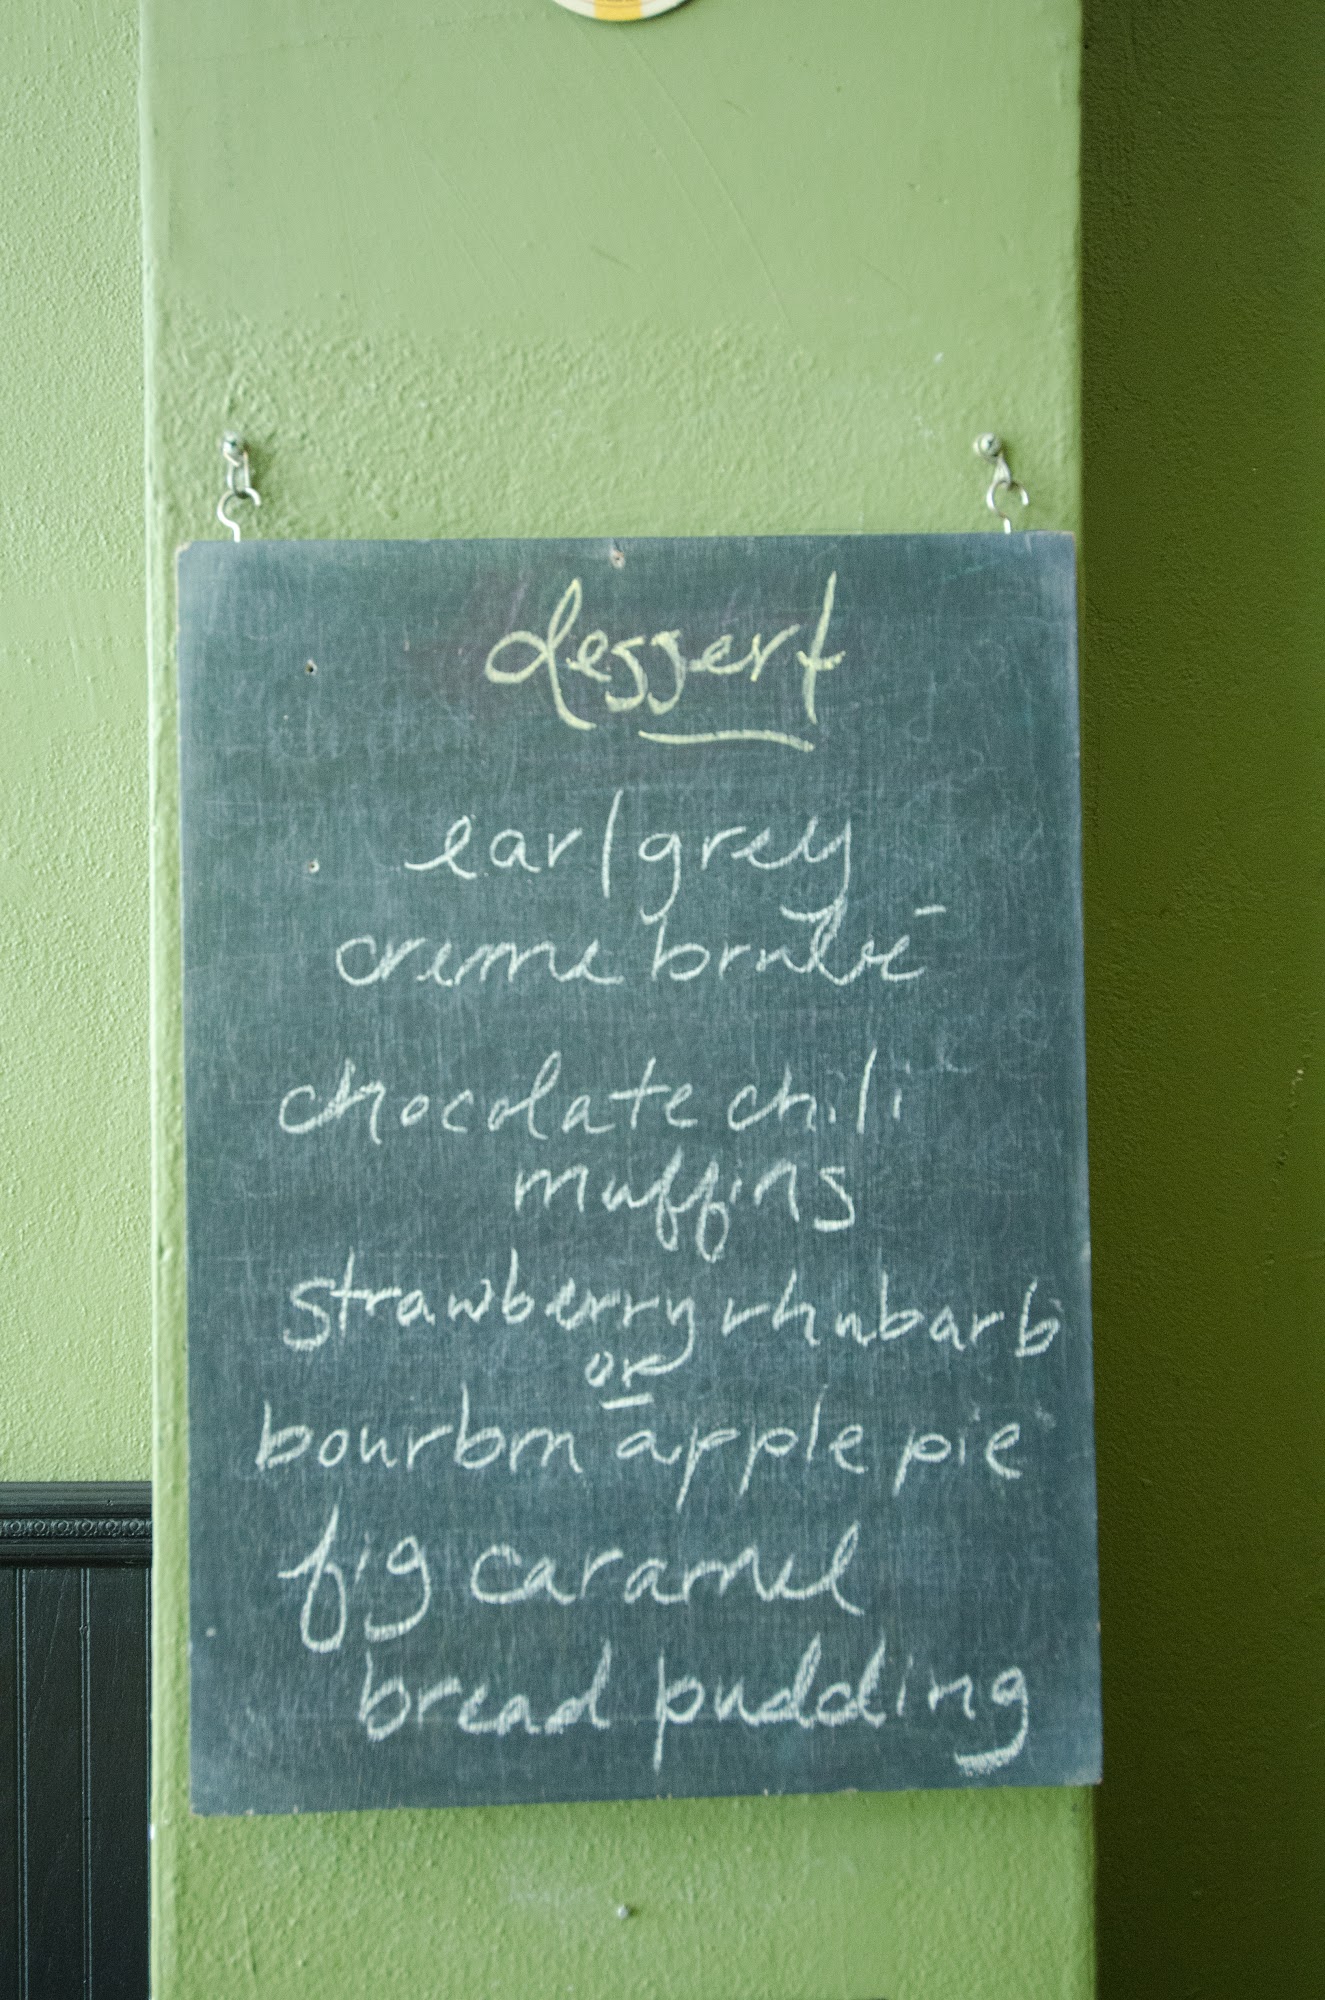 dessert
earl grey
creme brulee
chocolate chili
muffins
strawberry rhubarb
or
bourbon apple pie
fig caramel
bread pudding